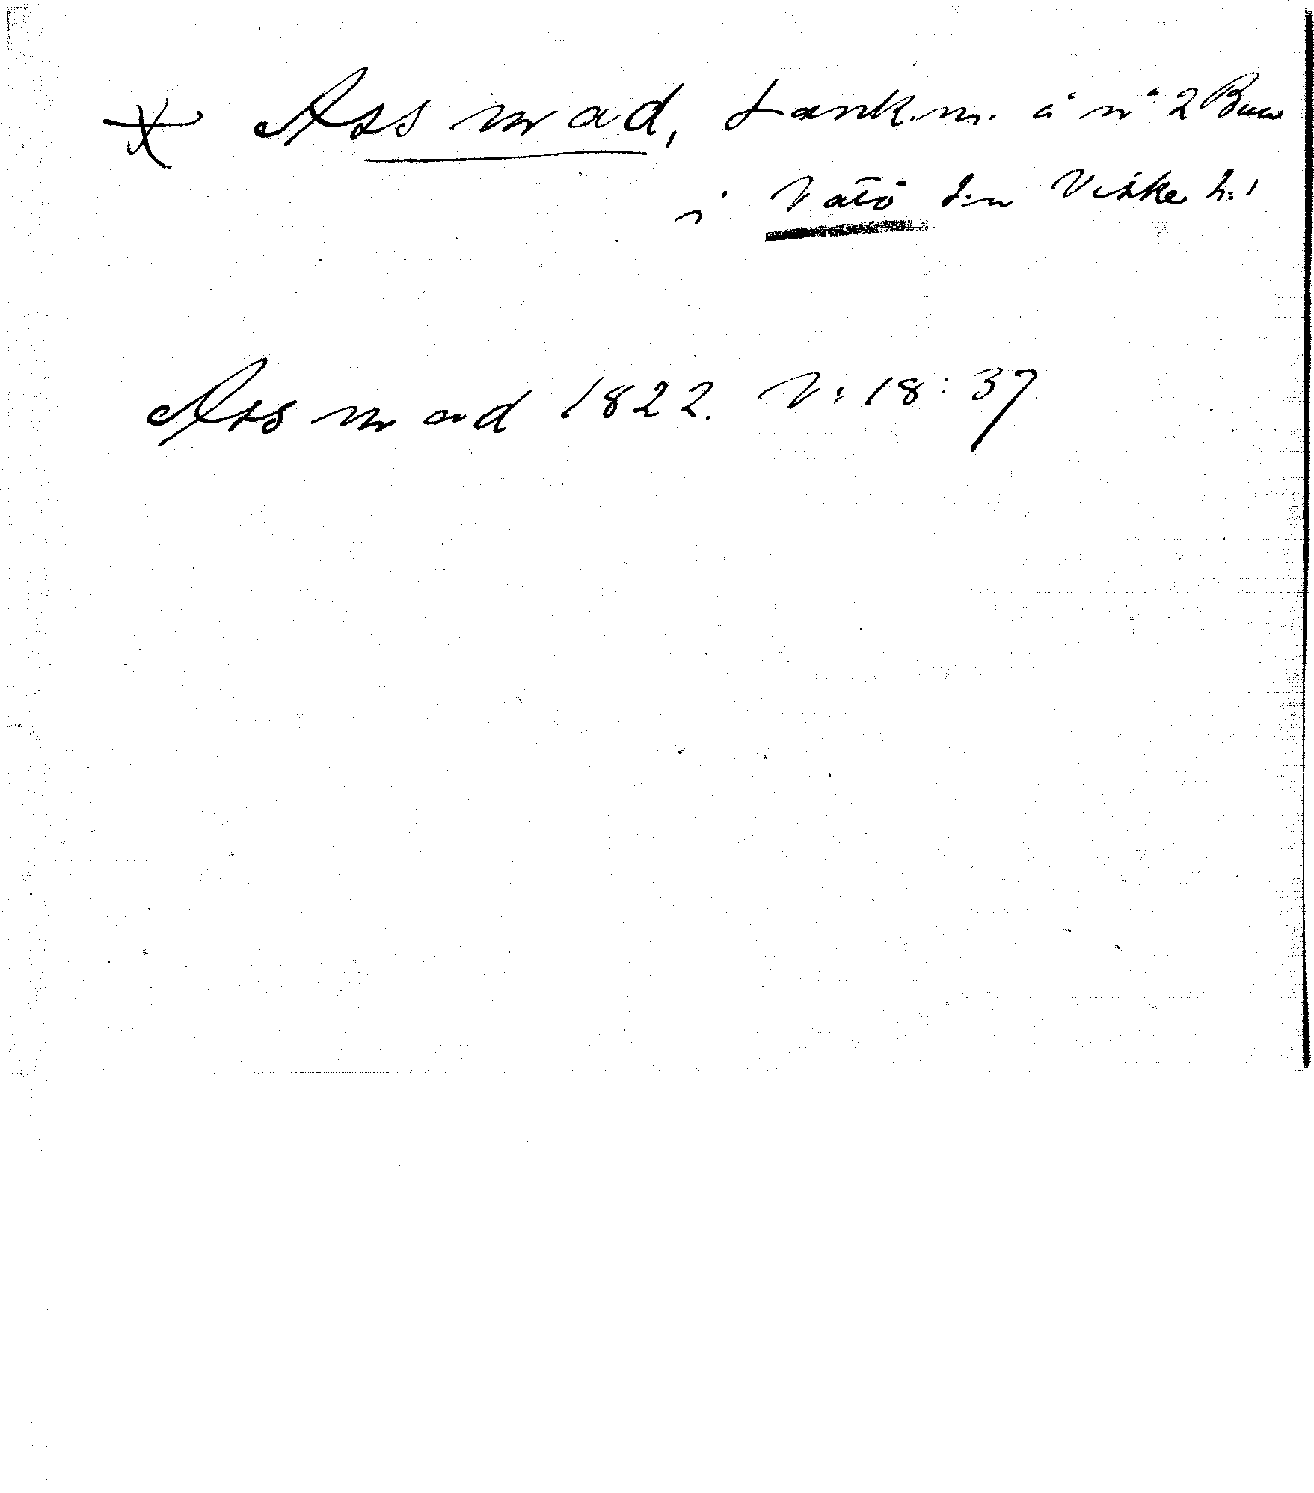 * Ass mad, tankm. å nº 2 Bua
i Vatö sn Viske h:!
Ass mad 1822. V: 18: 37